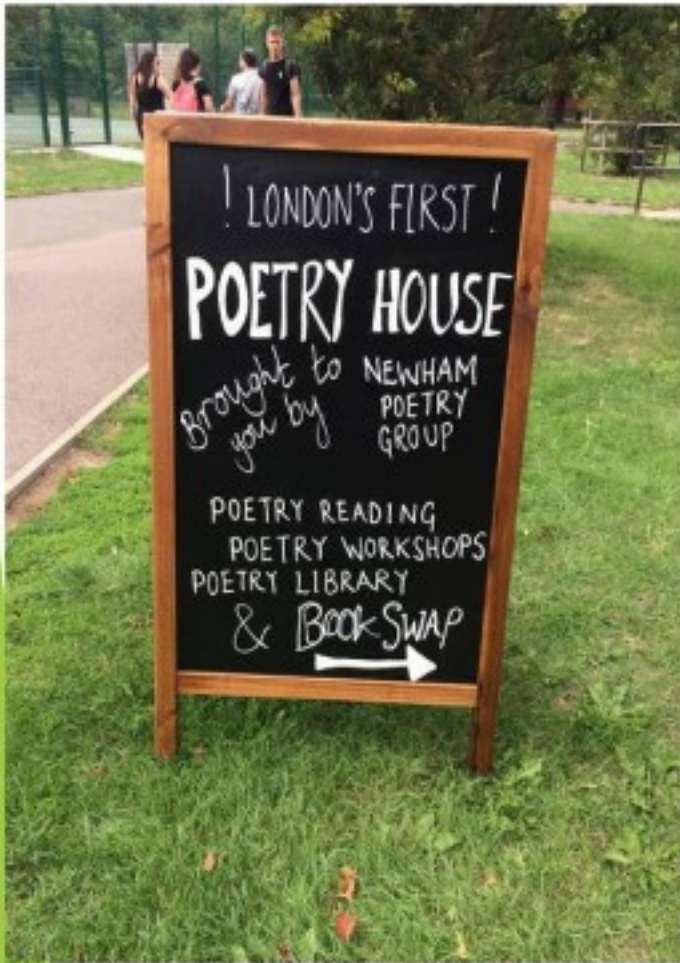 ! LONDON'S FIRST !
POETRY HOUSE
Brought to
you by
NEWHAM
POETRY
GROUP
POETRY READING
POETRY WORKSHOPS
POETRY LIBRARY
& BOOK SWAP